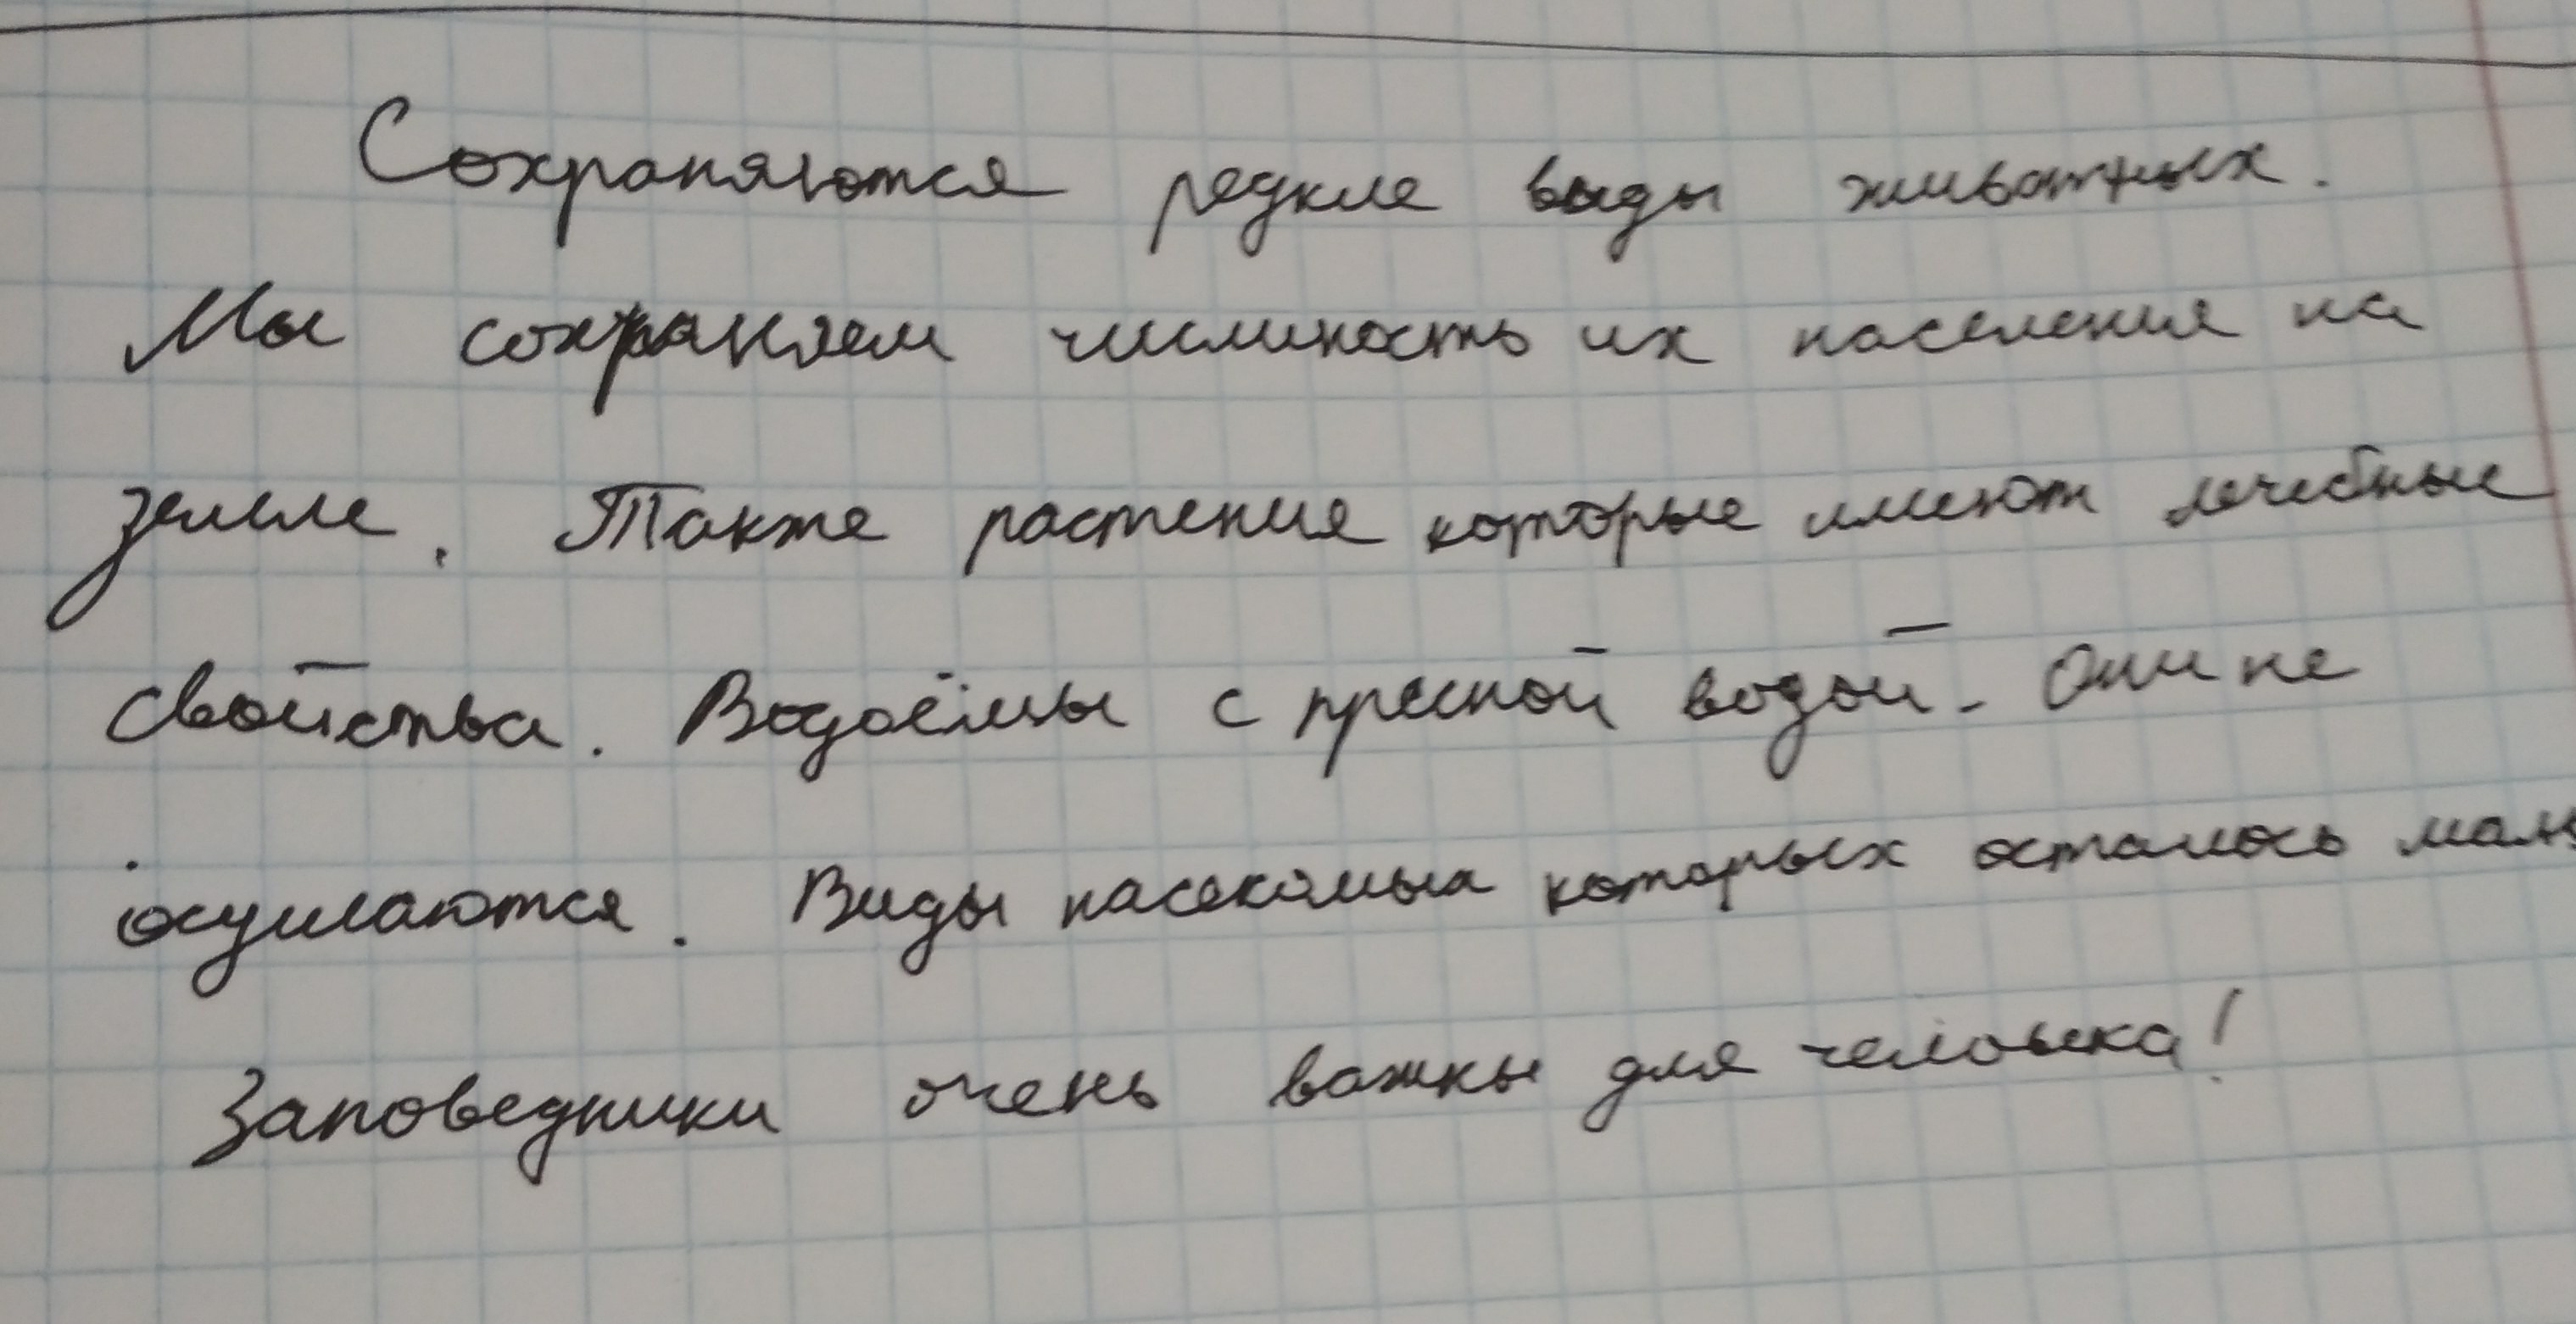 Сохраняются редкие виды животных.
Мы сохраняем числиность их населения на
земле. Также растения которые имеют лечебные
свойства. Водоёмы с пресной водой. Они не
осушаются. Виды насекомых которых осталось мало
Заповедники очень важны для человека!